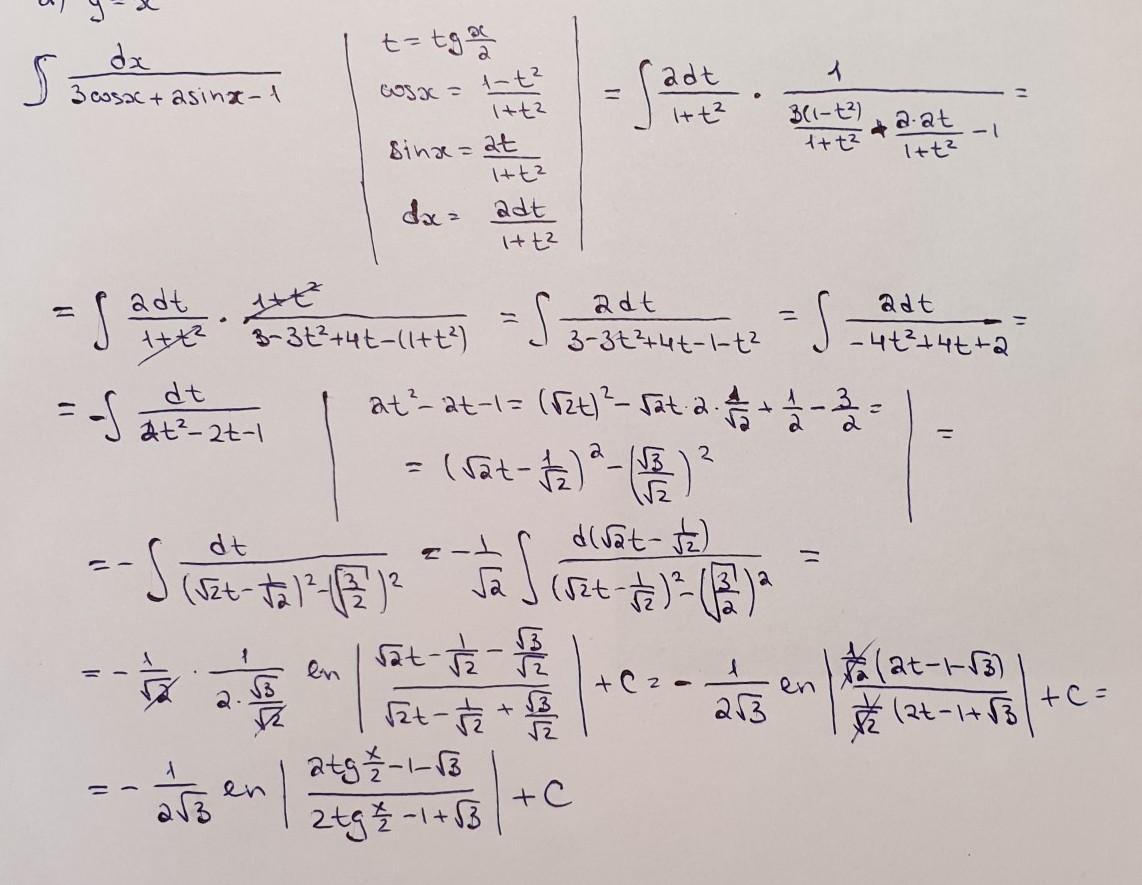 a) y = x
∫ dx/(3cosx + 2sinx - 1) | t = tg x/2 | = ∫ 2dt/(1+t²) · 1/(3(1-t²)/(1+t²) + 2·2t/(1+t²) - 1) =
cosx = (1-t²)/(1+t²)
sinx = 2t/(1+t²)
dx = 2dt/(1+t²)
= ∫ 2dt/(1+t²) · (1+t²)/(3-3t²+4t-(1+t²)) = ∫ 2dt/(3-3t²+4t-1-t²) = ∫ 2dt/(-4t²+4t+2) =
= -∫ dt/(2t²-2t-1) | 2t²-2t-1 = (√2t)² - √2t·2·1/√2 + 1/2 - 3/2 = | =
= (√2t - 1/√2)² - (√3/√2)²
= -∫ dt/((√2t - 1/√2)² - (√(3/2))²) = -1/√2 ∫ d(√2t - 1/√2)/((√2t - 1/√2)² - (√(3/2))²) =
= -1/√2 · 1/(2·√3/√2) ln |(√2t - 1/√2 - √3/√2)/(√2t - 1/√2 + √3/√2)| + C = -1/(2√3) ln |1/√2 (2t-1-√3)/(1/√2 (2t-1+√3)| + C =
= -1/(2√3) ln |(2tg x/2 - 1 - √3)/(2tg x/2 - 1 + √3)| + C